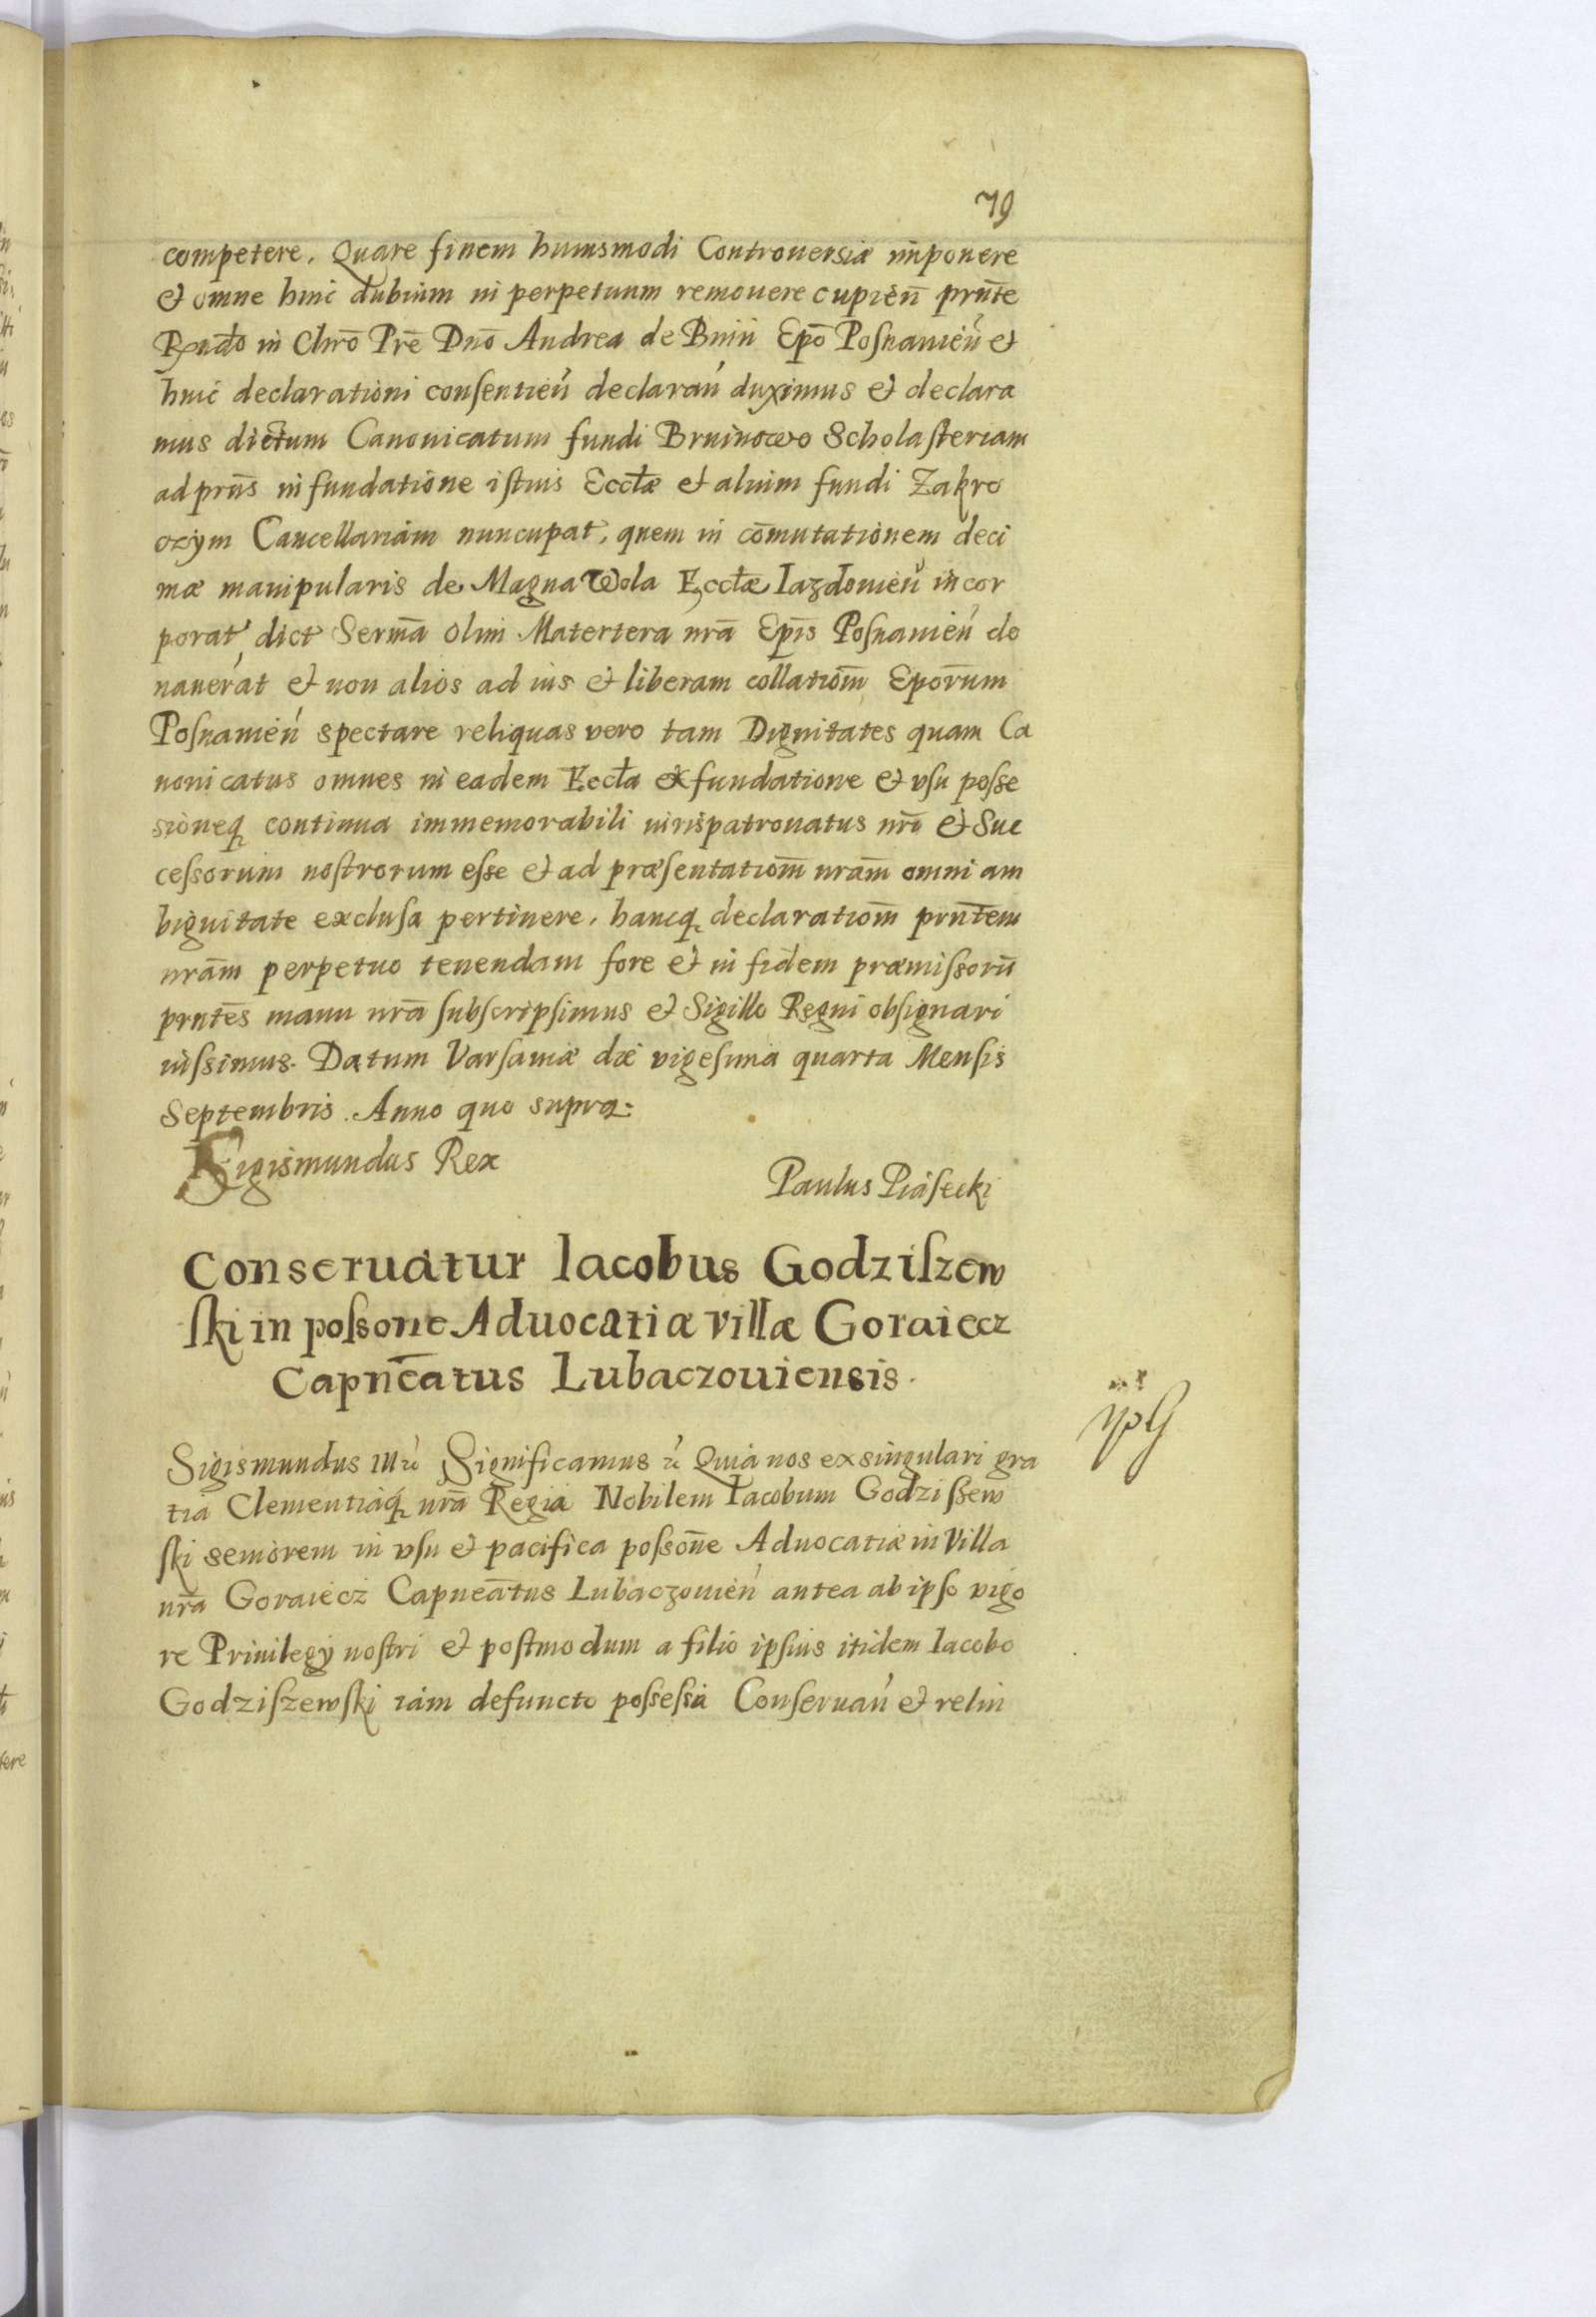 79
competere. Quare finem huiusmodi Controuersiæ imponere
et omne hinc dubium in perpetuum remouere cupien̄ prn̄te
Rn̄do in Chrō Prē Dnō Andrea de Bnin Epō Posnanien̄ et
huic declarationi consentien̄ declaran̄ duximus et declara
mus dictum Canonicatum fundi Bruinowo Scholasteriam
ad prn̄s in fundatione istius Eccłæ et alium fundi Zakro
czym Cancellariam nuncupat, quem in cōmutationem deci
mæ manipularis de Magna Wola Eccłæ Iazdouien̄ incor
porat dict Serm̄a olim Matertera nrā Ep̄is Posnanien̄ do
nauerat et non alios ad ius et liberam collatiōm Epōrum
Posnanien̄ spectare reliquas vero tam Dignitates quam Ca
nonicatus omnes in eadem Eccła ex fundatione et vsu posse
sioneq continua immemorabili iurispatronatus nrī et Suc
cessorum nostrorum esse et ad præsentatiōm nrām omni am
biguitate exclusa pertinere, hancq declaratiōm prn̄tem
nrām perpetuo tenendam fore et in fidem præmissorū
prn̄tes manu nrā subscripsimus et Sigillo Regni obsignari
iussimus. Datum Varsauiæ die vigesima quarta Mensis
Septembris. Anno quo supra:
Sigismundus Rex
Paulus Piasecki
Conseruatur Iacobus Godziszew
ski in possone Aduocatiæ villæ Goraiecz
Capnēatus Lubaczouiensis.
Sigismundus III etc Significamus etc Quia nos ex singulari gra
tia Clementiaq nrā Regia Nobilem Iacobum Godzissew
ski seniorem in vsu et pacifica possōne Aduocatiæ in Villa
nrā Goraiecz Capneātus Lubaczouien̄ antea ab ipso vigo
re Priuilegy nostri et postmodum a filio ipsius itidem Iacobo
Godziszewski iam defuncto possessa Conseruan̄ et relin